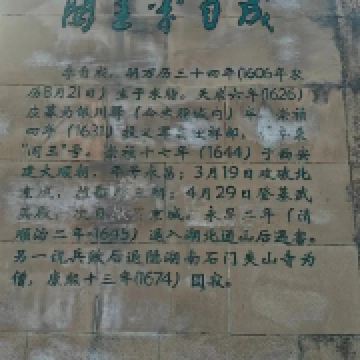 闯王李自成
李自成，明万历三十四年(1606年农
历8月21日)生于米脂。天启六年(1626)
应募为银川驿(今米脂城内)卒，崇祯
四年(1631)投义军 
"闯王"号。崇祯十七年(1644)于西安
建大顺朝，年号永昌；3月19日攻破北
京城，4月29日登基武
英殿，次日 京城，永昌二年(清
顺治二年-1645)退入湖北通山后遇害。
另一说兵败后退隐湖南石门夹山寺为
僧，康熙十三年(1674)圆寂。